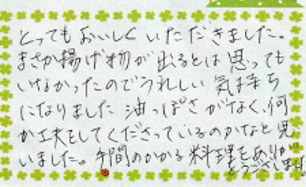 とってもおいしくいただきました。
まさか揚げ物が出るとは思っても
いなかったのでうれしい気持ち
になりました 油っぽさがなく、何
か工夫をしてくださっているのかなと思
いました。手間のかかる料理をありが
とうございます